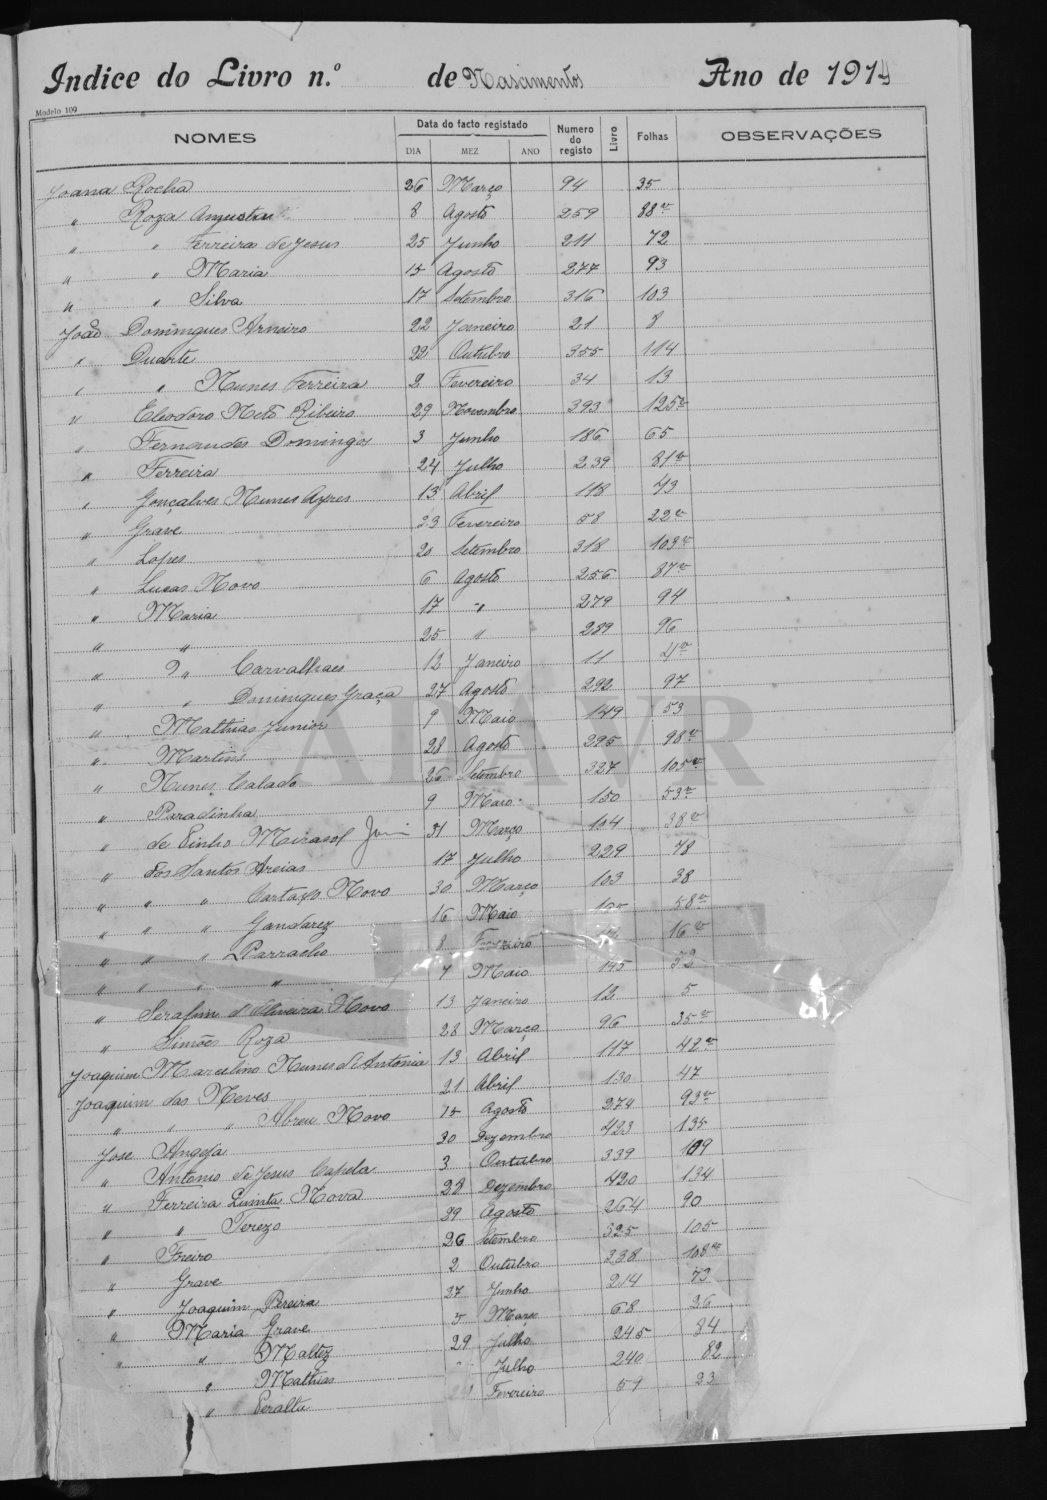 Indice do Livro n.º de Nascimentos Ano de 1914
Modelo 109
NOMES Data do facto registado Numero do registo Livro Folhas OBSERVAÇÕES
DIA MEZ ANO
Joana Rocha 26 Março 94 35
" Roza Augusta 8 Agosto 259 88v
" " Ferreira de Jesus 25 Junho 211 72
" " Maria 15 Agosto 277 93
" " Silva 17 Setembro 316 103
João Domingues Arneiro 22 Janeiro 21 8
" Duarte 22 Outubro 355 114
" " Nunes Ferreira 2 Fevereiro 34 13
" Eleodoro Neto Ribeiro 29 Novembro 393 125v
" Fernandes Domingos 3 Junho 186 65
" Ferreira 24 Julho 239 81v
" Gonçalves Nunes Ayres 13 Abril 118 43
" Grave 23 Fevereiro 58 22v
" Lopes 20 Setembro 318 103v
" Lucas Novo 6 Agosto 256 87v
" Maria 17 " 279 94
" " 25 " 289 96
" " Carvalhaes 12 Janeiro 11 4v
" " Domingues Graça 27 Agosto 292 97
" Mathias Junior 9 Maio 149 53
" Martins 28 Agosto 295 98v
" Nunes Calado 26 Setembro 327 105v
" Paradinha 9 Maio 150 53v
" de Pinho Mirasol 31 Março 104 38v
" dos Santos Areias 17 Julho 229 78
" " " Cartaxo Novo 30 Março 103 38
" " " Gandarez 16 Maio 58v
" " " Parracho 8 Fevereiro 16v
" " " " 7 Maio 145 52
" Serafim d'Oliveira Novo 13 Janeiro 12 5
" Simões Roza 28 Março 96 35v
Joaquim Marcelino Nunes d'Antonia 13 Abril 117 42v
Joaquim das Neves 21 Abril 130 47
" " " Abreu Novo 15 Agosto 274 93v
Jose Angeja 30 Dezembro 423 135
" Antonio de Jesus Capela 3 Outubro 339 109
" Ferreira Quinta Nova 28 Dezembro 420 134
" " Terezo 29 Agosto 264 90
" Freiro 26 Setembro 325 105
" Grave 2 Outubro 338 108v
" Joaquim Pereira 27 Junho 214 73
" Maria Grave 5 Março 68 26
" " Maltez 29 Julho 245 84
" Mathias Julho 240 82
" Peralta Fevereiro 59 23
ADAVR